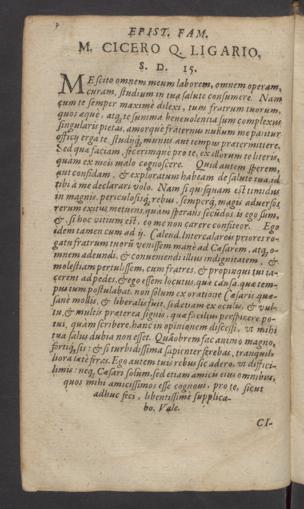 EPIST. FAM.
M. CICERO Q. LIGARIO,
S. D. 15.
ME scito omnem meum laborem, omnem operam,
curam, studium in tua salute consumere. Nam
cum te semper maximè dilexi, tum fratrum tuorum,
quos æque, atq; te summa beneuolentia sum complexus
singularis pietas, amorque fraternus nullum me patitur
officij erga te studiiq́; munus aut tempus prætermittere.
Sed quæ faciam, fecerimque pro te, ex illorum te literis,
quam ex meis malo cognoscere. Quid autem sperem,
aut confidam, & exploratum habeam de salute tua, id
tibi à me declarari volo. Nam si quisquam est timidus
in magnis, periculosisq́; rebus, semperq́; magis aduersos
rerum exitus metuens, quam sperans secundos is ego sum,
&, si hoc vitium est, eo me non carere confiteor. Ego
idem tamen cum ad ij. Calend. Intercalareis priores ro-
gatu fratrum tuorũ venissem manè ad Cæsarem, atq; o-
mnem adeundi, & conueniendi illius indignitatem, &
molestiam pertulissem, cum fratres, & propinqui tui ia-
cerent ad pedes, & ego essem locutus, quæ causa, quæ tem-
pus tuum postulabat, non solum ex oratione Cæsaris, quæ
sanè mollis, & liberalis fuit, sed etiam ex oculis, & vul-
tu, & multis præterea signis, quæ facilius perspicere po-
tui, quàm scribere, hanc in opinionem discessi, vt mihi
tua salus dubia non esset. Quãobrem fac animo magno,
fortiq́; sis: & si turbidissima sapienter ferebas, tranquil-
liora lætè feras. Ego autem tuis rebus sic adero, vt diffici-
limis: neq; Cæsari solum, sed etiam amicis eius omnibus,
quos mihi amicissimos esse cognoui, pro te, sicut
adhuc feci, libentissimè supplica-
bo. Vale.
CI-